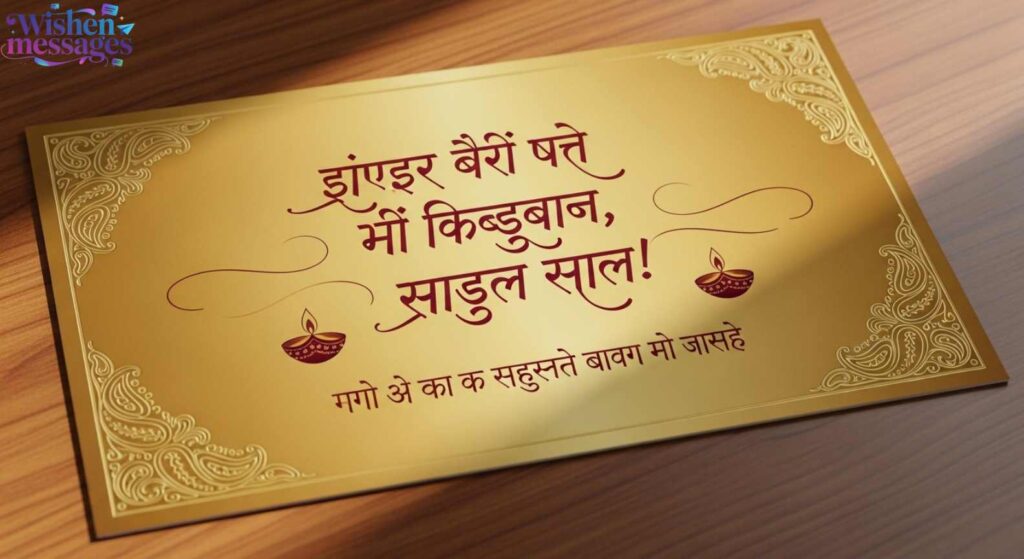 Wishen
messages
झांएइर बैरीं षत्ते
भीं किब्डुबान,
साडुल साल!
गगो अे का क सहुस्नते बावग मो जासहे